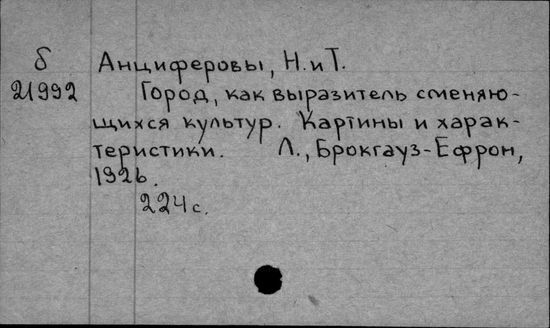 б Анциферовы, Н. и Т.
21992 Город, как выразитель сменяю-
щихся культур. Картины и харак-
теристики. Л., Брокгауз-Ефрон,
1926.
224 с.